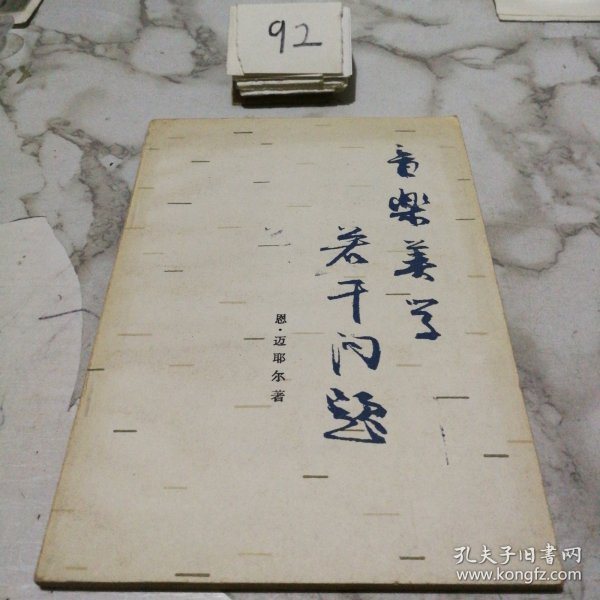 92
音樂美学
若干问题
恩·迈耶尔著
孔夫子旧书网
www.kongfz.com